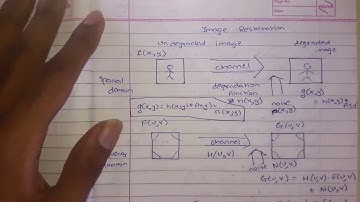 Image Restoration
undegraded image degraded image
f(x,y)
channel
degradation function h(x,y)
noise
g(x,y)
domain
g(x,y) = h(x,y) * f(x,y) + n(x,y)
= h(x,y) *
F(u,v) G(u,v)
channel
H(u,v)
noise N(u,v)
domain
G(u,v) = H(u,v) · F(u,v)
+ N(u,v)